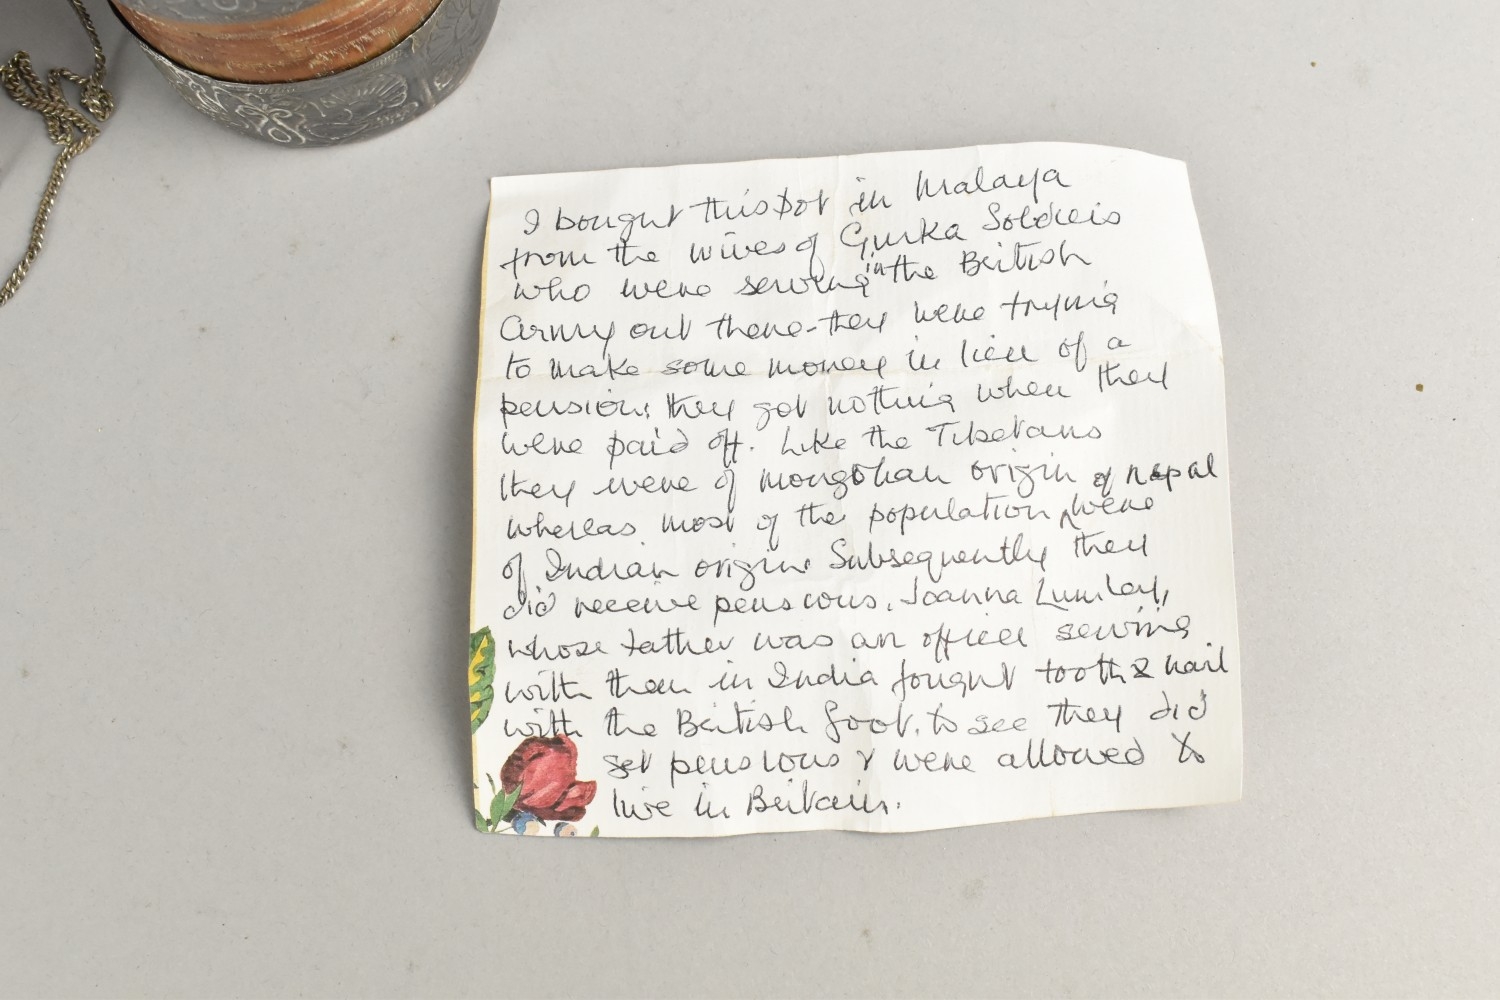 I bought this pot in Malaya
from the wives of Gurka Soldiers
who were serving in the British
Army out there - they were trying
to make some money in lieu of a
pension; they got nothing when they
were paid off. Like the Tibetans
they were of mongolian origin
whereas most of the population of nepal were
of Indian origin. Subsequently they
did receive pensions. Joanna Lumley,
whose father was an officer serving
with them in India fought tooth & nail
with the British Govt. to see they did
get pensions & were allowed to
live in Britain.